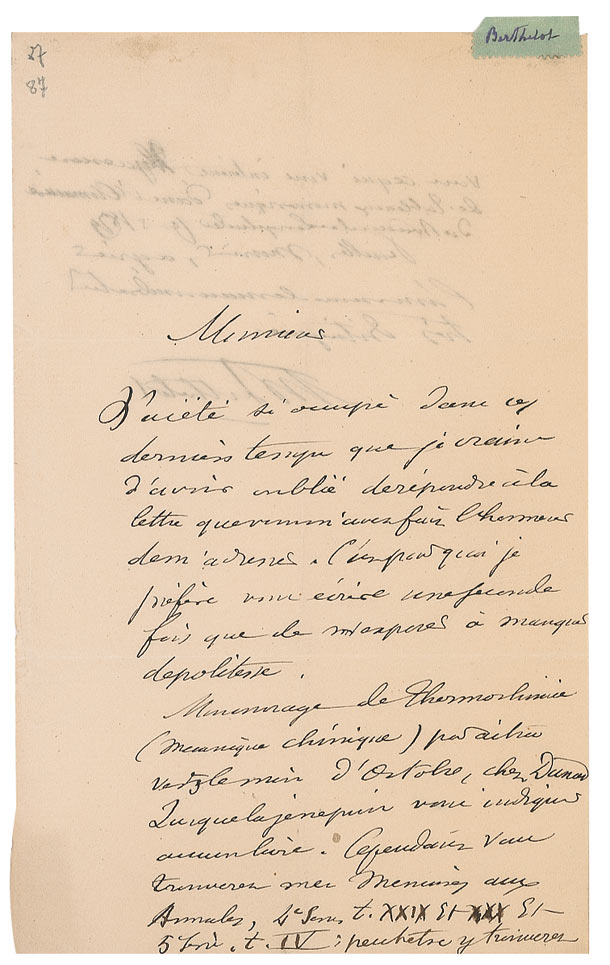 Berthelot
27
87
Monsieur
J'ai été si occupé dans ces
derniers temps que je crains
d'avoir oublié de répondre à la
lettre que vous m'avez fait l'honneur
de m'adresser. C'est pourquoi je
préfère vous écrire une seconde
fois que de m'exposer à manquer
de politesse.
Mon ouvrage de Thermochimie
(mécanique chimique) paraîtra
vers le mois d'Octobre, chez Dunod
Jusque là je ne puis vous indiquer
aucun livre. Cependant vous
trouverez mes Mémoires aux
Annales, 4e Série, t. XXIX Et XXX Et
5 Série. t. IV : peut être y trouverez